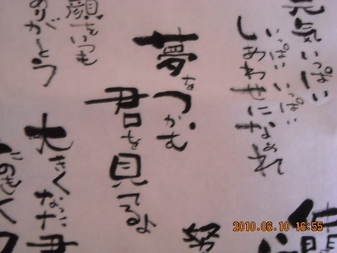 元気いっぱい
いっぱいいっぱい
しあわせになあれ
夢をつかむ
君を見てるよ
顔をいつも
ありがとう
大きくなった君
努
2010.06.10 16:55